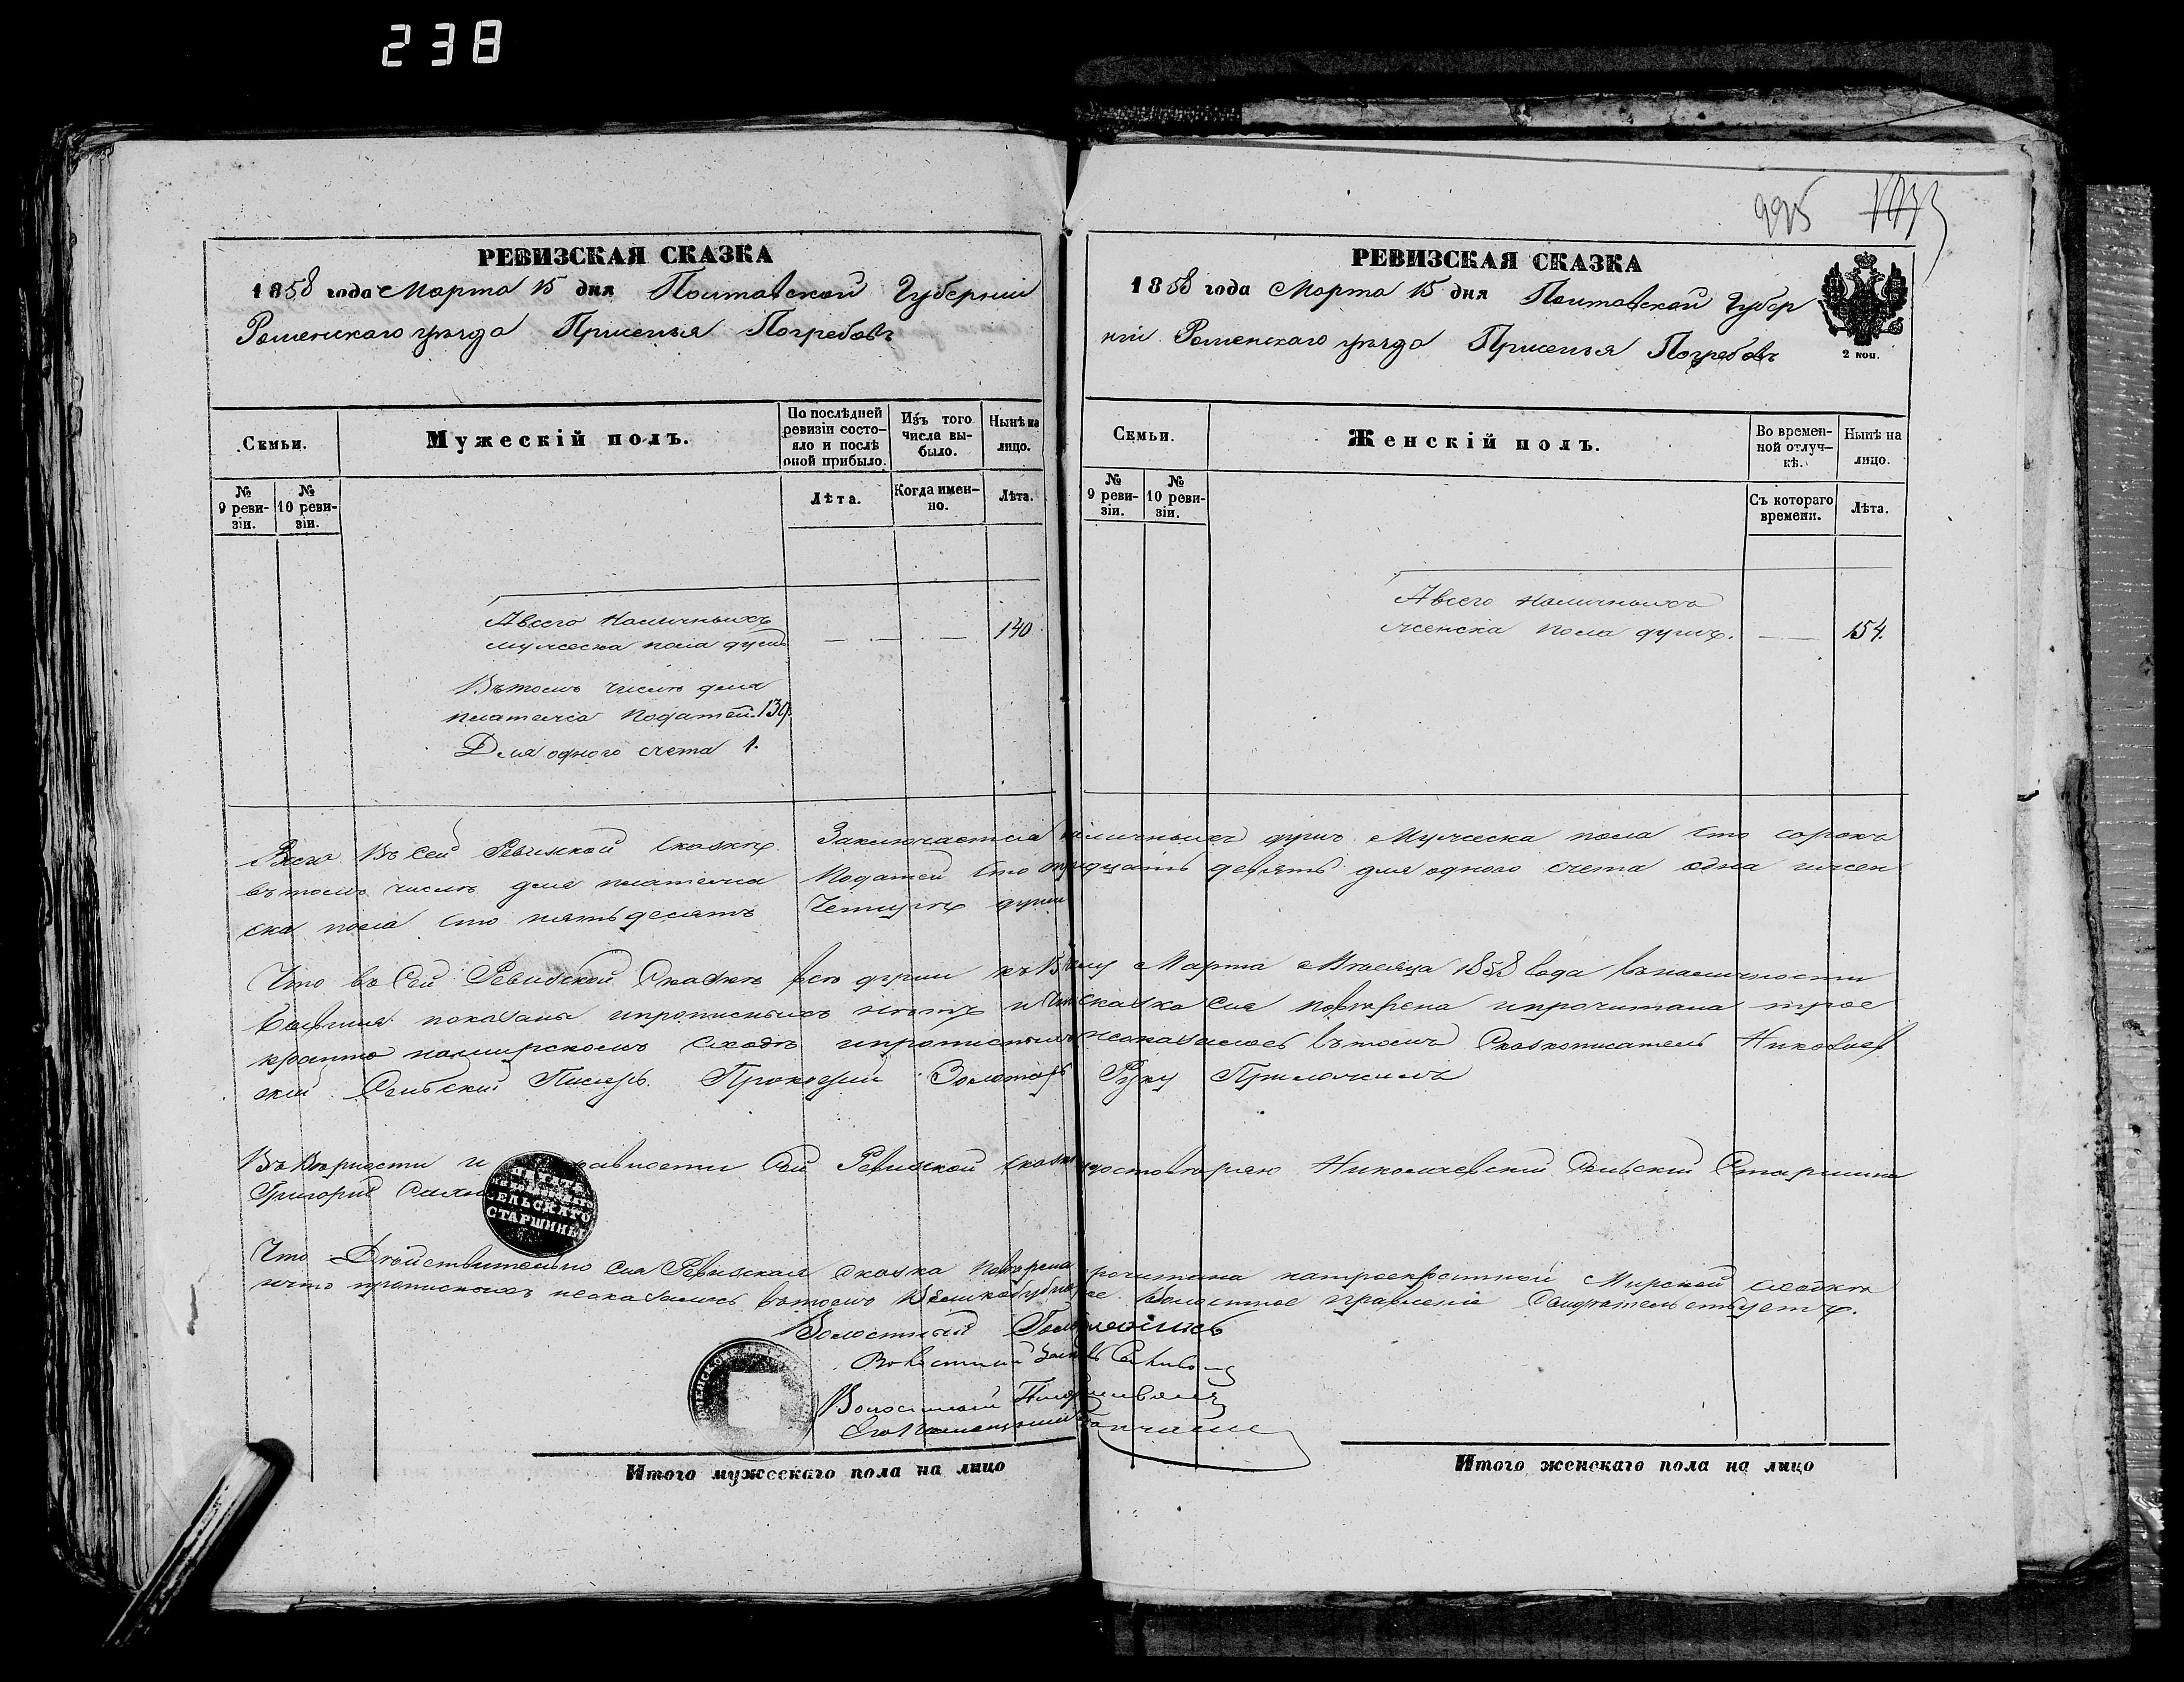 238
РЕВИЗСКАЯ СКАЗКА
1858 года Марта 15 дня Полтавской Губерніи
Роменскаго уѣзда Приселья Погребовъ
Семьи.
Мужескій полъ.
По послѣдней ревизіи состояло и послѣ оной прибыло.
Изъ того числа выбыло.
Нынѣ на лицо.
№ 9 ревизіи.
№ 10 ревизіи.
Лѣта.
Когда именно.
Лѣта.
Авсего Наличныхъ
мужеска пола душъ 140
Вътомъ числѣ для
платежа Податей. 139.
Для одного счета 1.
225
РЕВИЗСКАЯ СКАЗКА
1858 года Марта 15 дня Полтавской Губер
ніи Роменскаго уѣзда Приселья Погребовъ
2 коп.
Семьи.
Женскій полъ.
Во временной отлучкѣ.
Нынѣ на лицо.
№ 9 ревизіи.
№ 10 ревизіи.
Съ котораго времени.
Лѣта.
Авсего Наличныхъ
женска пола душъ. 154.
Въ Сей Ревизской Сказкѣ Заключается наличныхъ душъ Мужеска пола Сто сорокъ
вътомъ числѣ для платежа Податей Сто тридцать девять для одного счета одна ижен
ска пола Сто пятьдесятъ Четыре души
Что въ Сей Ревизской Сказкѣ всѣ души Марта Мѣсяца 1858 Года внналичности
показаны ипрописныхъ нѣтъ и Сказка Сія повѣрена ипрочитана трое
кратно намирскомъ Сходѣ ипрописныхъ неоказалось вътомъ Сказкописатель Николаев
скій Сельскій Писарь Прокофій Золотарь Руку Приложилъ
Въ Вѣрности и Сей Ревизской Сказки удостовѣряю Николаевскій Сельскій Старшина
Григорій
ПЕЧАТЬ НИКОЛАЕВСКАГО СЕЛЬСКАГО СТАРШИНЫ
Что Дѣйствительно Сія Ревизская Сказка Повѣрена прочитана натроекратной Мирской сходкѣ
ичто прописныхъ неоказалось вътомъ Волостное Правленіе Свидѣтельствуетъ.
Волостный Голова
Волостный
Итого мужескаго пола на лицо
Итого женскаго пола на лицо